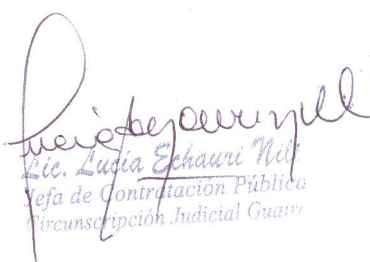 Lic. Lucía Echauri
Jefa de Contratación Pública
Circunscripción Judicial